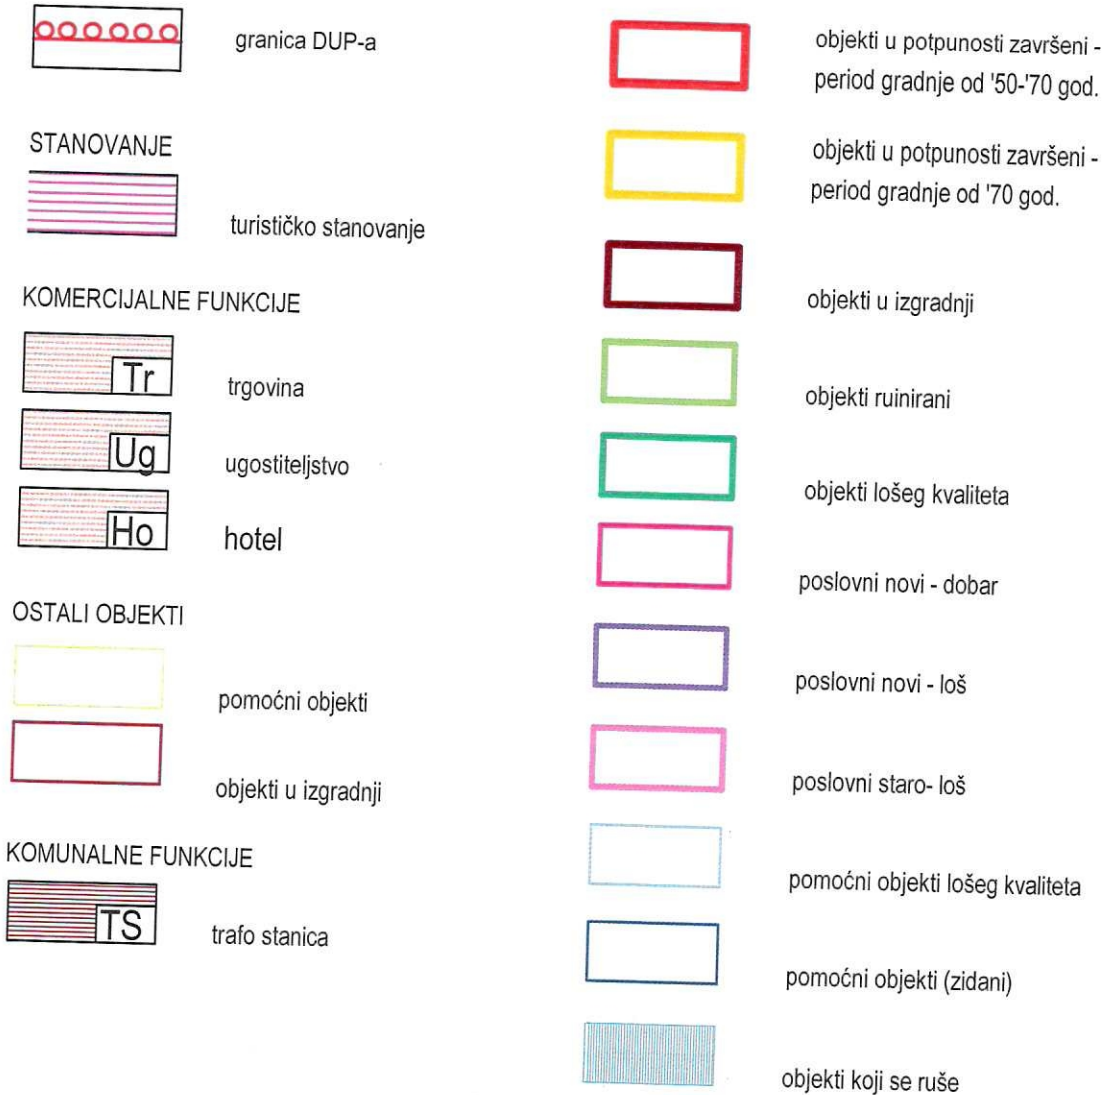 granica DUP-a
STANOVANJE
turističko stanovanje
KOMERCIJALNE FUNKCIJE
Tr
trgovina
Ug
ugostiteljstvo
Ho
hotel
OSTALI OBJEKTI
pomoćni objekti
objekti u izgradnji
KOMUNALNE FUNKCIJE
TS
trafo stanica
objekti u potpunosti završeni -
period gradnje od '50-'70 god.
objekti u potpunosti završeni -
period gradnje od '70 god.
objekti u izgradnji
objekti ruinirani
objekti lošeg kvaliteta
poslovni novi - dobar
poslovni novi - loš
poslovni staro- loš
pomoćni objekti lošeg kvaliteta
pomoćni objekti (zidani)
objekti koji se ruše